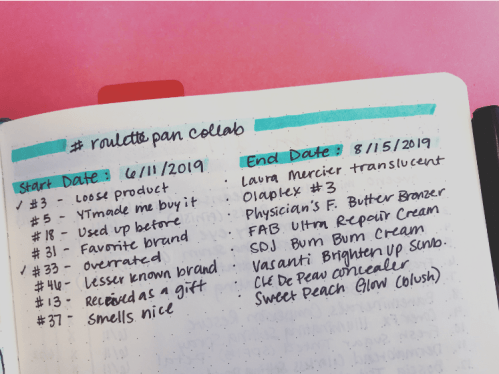 # roulette pan collab
Start Date: 6/11/2019 End Date: 8/15/2019
✓ #3 - Loose product · Laura Mercier translucent
#5 - YT made me buy it · Olaplex #3
#18 - Used up before · Physician's F. Butter Bronzer
#31 - Favorite brand · FAB Ultra Repair Cream
✓ #33 - Overrated · SDJ Bum Bum Cream
#46 - Lesser known brand · Vasanti Brighten Up Scrub.
#13 - Received as a gift · Clé De Peau concealer
#37 - Smells nice · Sweet Peach Glow (blush)